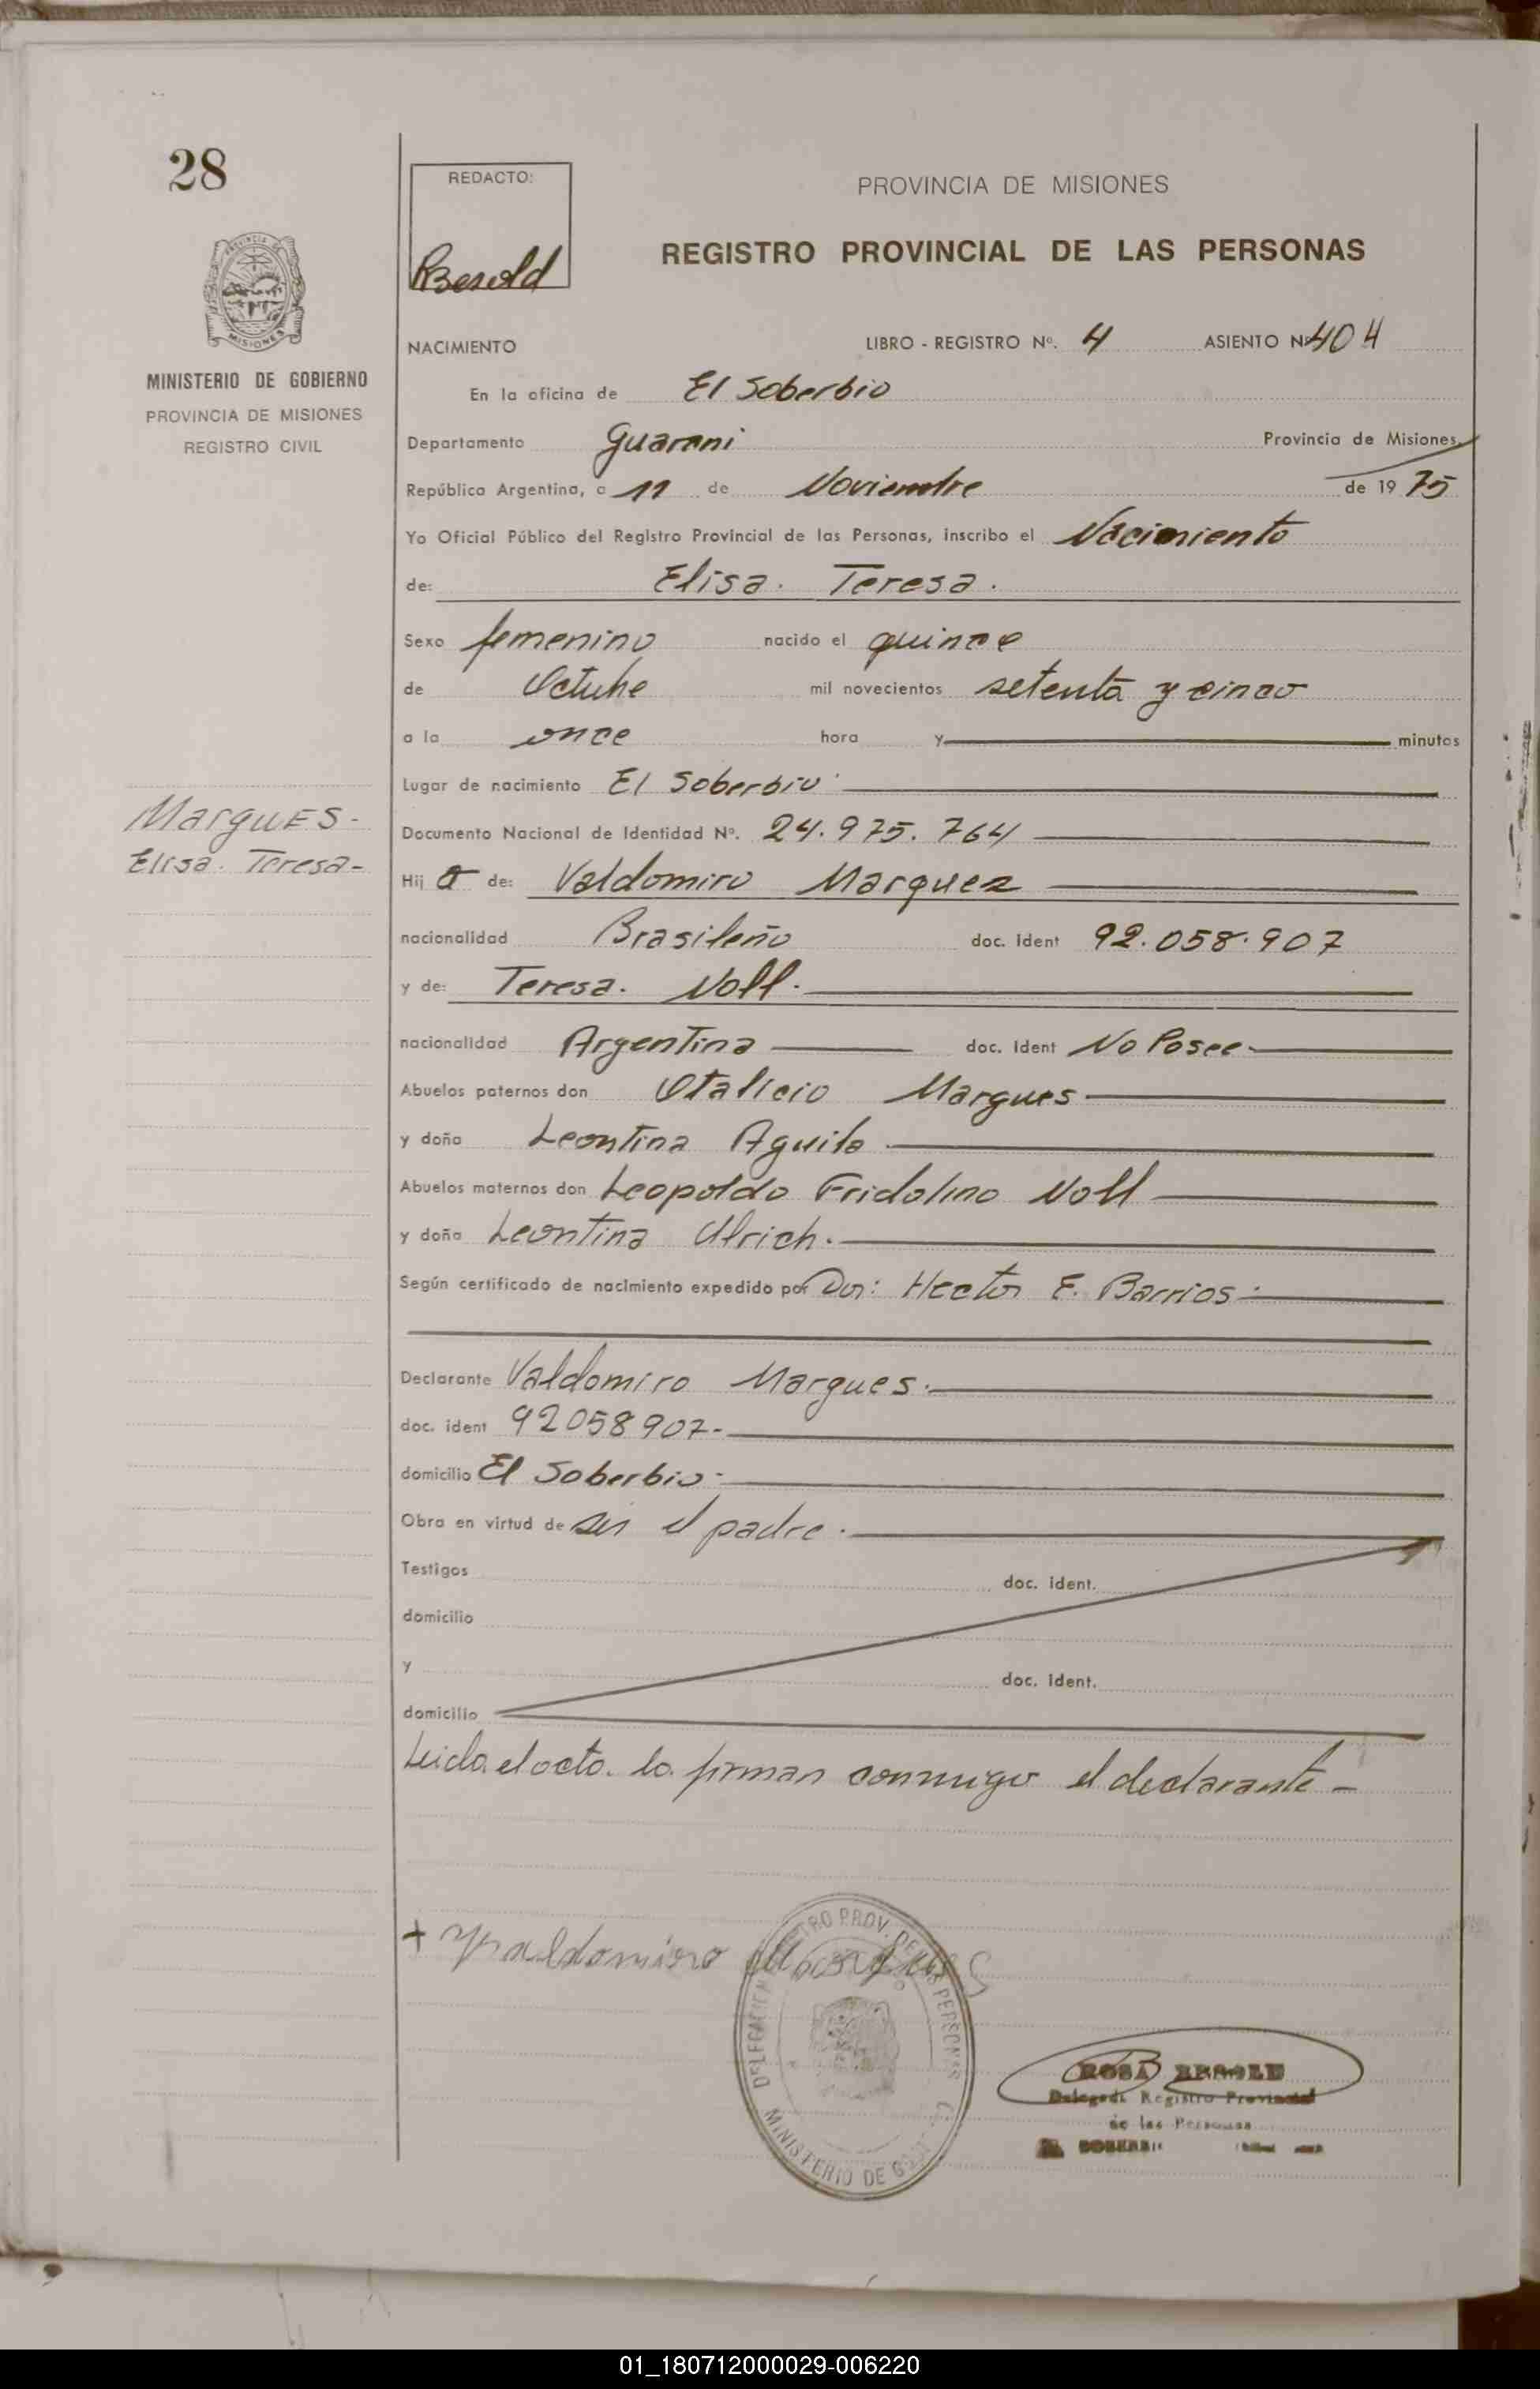 28
REDACTO:
Besold
PROVINCIA DE MISIONES
REGISTRO PROVINCIAL DE LAS PERSONAS
MISIONES
MINISTERIO DE GOBIERNO
PROVINCIA DE MISIONES
REGISTRO CIVIL
NACIMIENTO LIBRO - REGISTRO Nº. 4 ASIENTO Nº 404
En la oficina de El Soberbio
Departamento Guarani Provincia de Misiones,
República Argentina, a 11 de Noviembre de 1975
Yo Oficial Público del Registro Provincial de las Personas, inscribo el Nacimiento
de: Elisa. Teresa.
Sexo femenino nacido el quince
de Octubre mil novecientos setenta y cinco
a la once hora y minutos
Lugar de nacimiento El Soberbio
Margues-
Elisa. Teresa-
Documento Nacional de Identidad Nº. 24.975.764
Hij a de: Valdomiro Marquez
nacionalidad Brasileño doc. Ident 92.058.907
y de: Teresa. Noll.
nacionalidad Argentina doc. Ident No Posee
Abuelos paternos don Otalicio Margues
y doña Leontina Aguilo
Abuelos maternos don Leopoldo Fridolino Noll
y doña Leontina Ulrich.
Según certificado de nacimiento expedido por Dor: Hector E. Barrios
Declarante Valdomiro Margues.
doc. ident 92058907-
domicilio El Soberbio-
Obra en virtud de ser el padre.
Testigos doc. ident.
domicilio
y doc. ident.
domicilio
Leida el acto. lo. firman conmigo el declarante-
+ Valdomiro Margues
DELEGACION REGISTRO PROV. DE LAS PERSONAS
MINISTERIO DE GOB
ROSA BESOLD
Delegada Registro Provincial
de las Personas
EL SOBERBIO
01_180712000029-006220